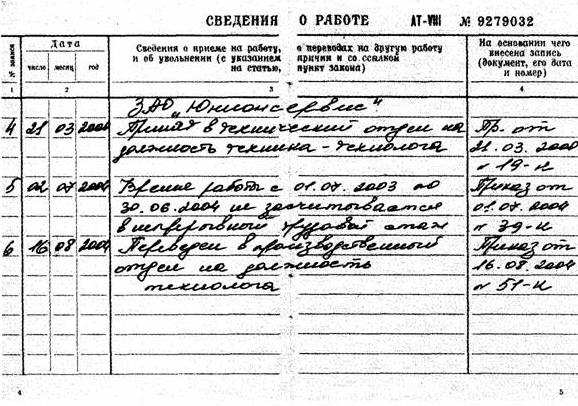 СВЕДЕНИЯ О РАБОТЕ АТ-VIII № 9279032
№ записи
Дата
число месяц год
Сведения о приеме на работу, о переводах на другую работу
и об увольнении (с указанием причин и со ссылкой
на статью, пункт закона)
На основании чего
внесена запись
(документ, его дата
и номер)
1 2 3 4
ЗАО „Юнионсервис"
4 21 03 2004 Принят в технический отдел на Пр. от
должность техника-технолога 21.03.2000
№ 19-к
5 02 07 2004 Время работы с 01.07.2003 по Приказ от
30.06.2004 не засчитывается 01.07.2004
в непрерывный трудовой стаж № 39-к
6 16 08 2004 Переведен в производственный Приказ от
отдел на должность 16.08.2004
технолога № 51-к
4 5